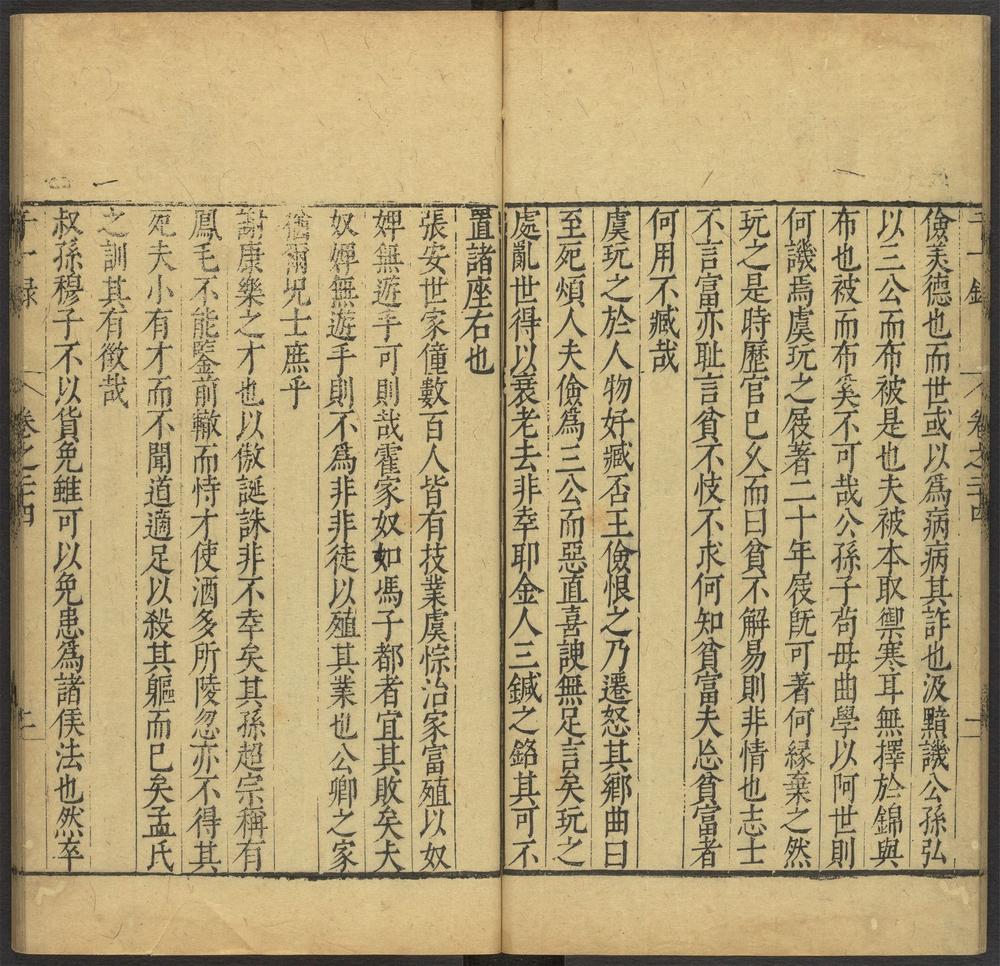 儉美德也而世或以爲病病其詐也汲黯譏公孫弘
以三公而布被是也夫被本取禦寒耳無擇於錦與
布也被而布奚不可哉公孫子茍毋曲學以阿世則
何譏焉虞玩之屐著二十年屐旣可著何緣棄之然
玩之是時歷官已久而曰貧不解易則非情也志士
不言富亦耻言貧不忮不求何知貧富夫忩貧富者
何用不臧哉
虞玩之於人物好臧否王儉恨之乃遷怒其鄉曲曰
至死煩人夫儉爲三公而惡直喜諛無足言矣玩之
處亂世得以衰老去非幸耶金人三鍼之銘其可不
置諸座右也
張安世家僮數百人皆有技業虞悰治家富殖以奴
婢無遊手可則哉霍家奴如馮子都者宜其敗矣夫
奴婢無遊手則不爲非非徒以殖其業也公卿之家
循爾咒士庶乎
謝康樂之才也以傲誕誅非不幸矣其孫超宗稱有
鳳毛不能鑒前轍而恃才使酒多所陵忽亦不得其
死夫小有才而不聞道適足以殺其軀而已矣孟氏
之訓其有徵哉
叔孫穆子不以貨免雖可以免患爲諸侯法也然卒
卷之二十四
二